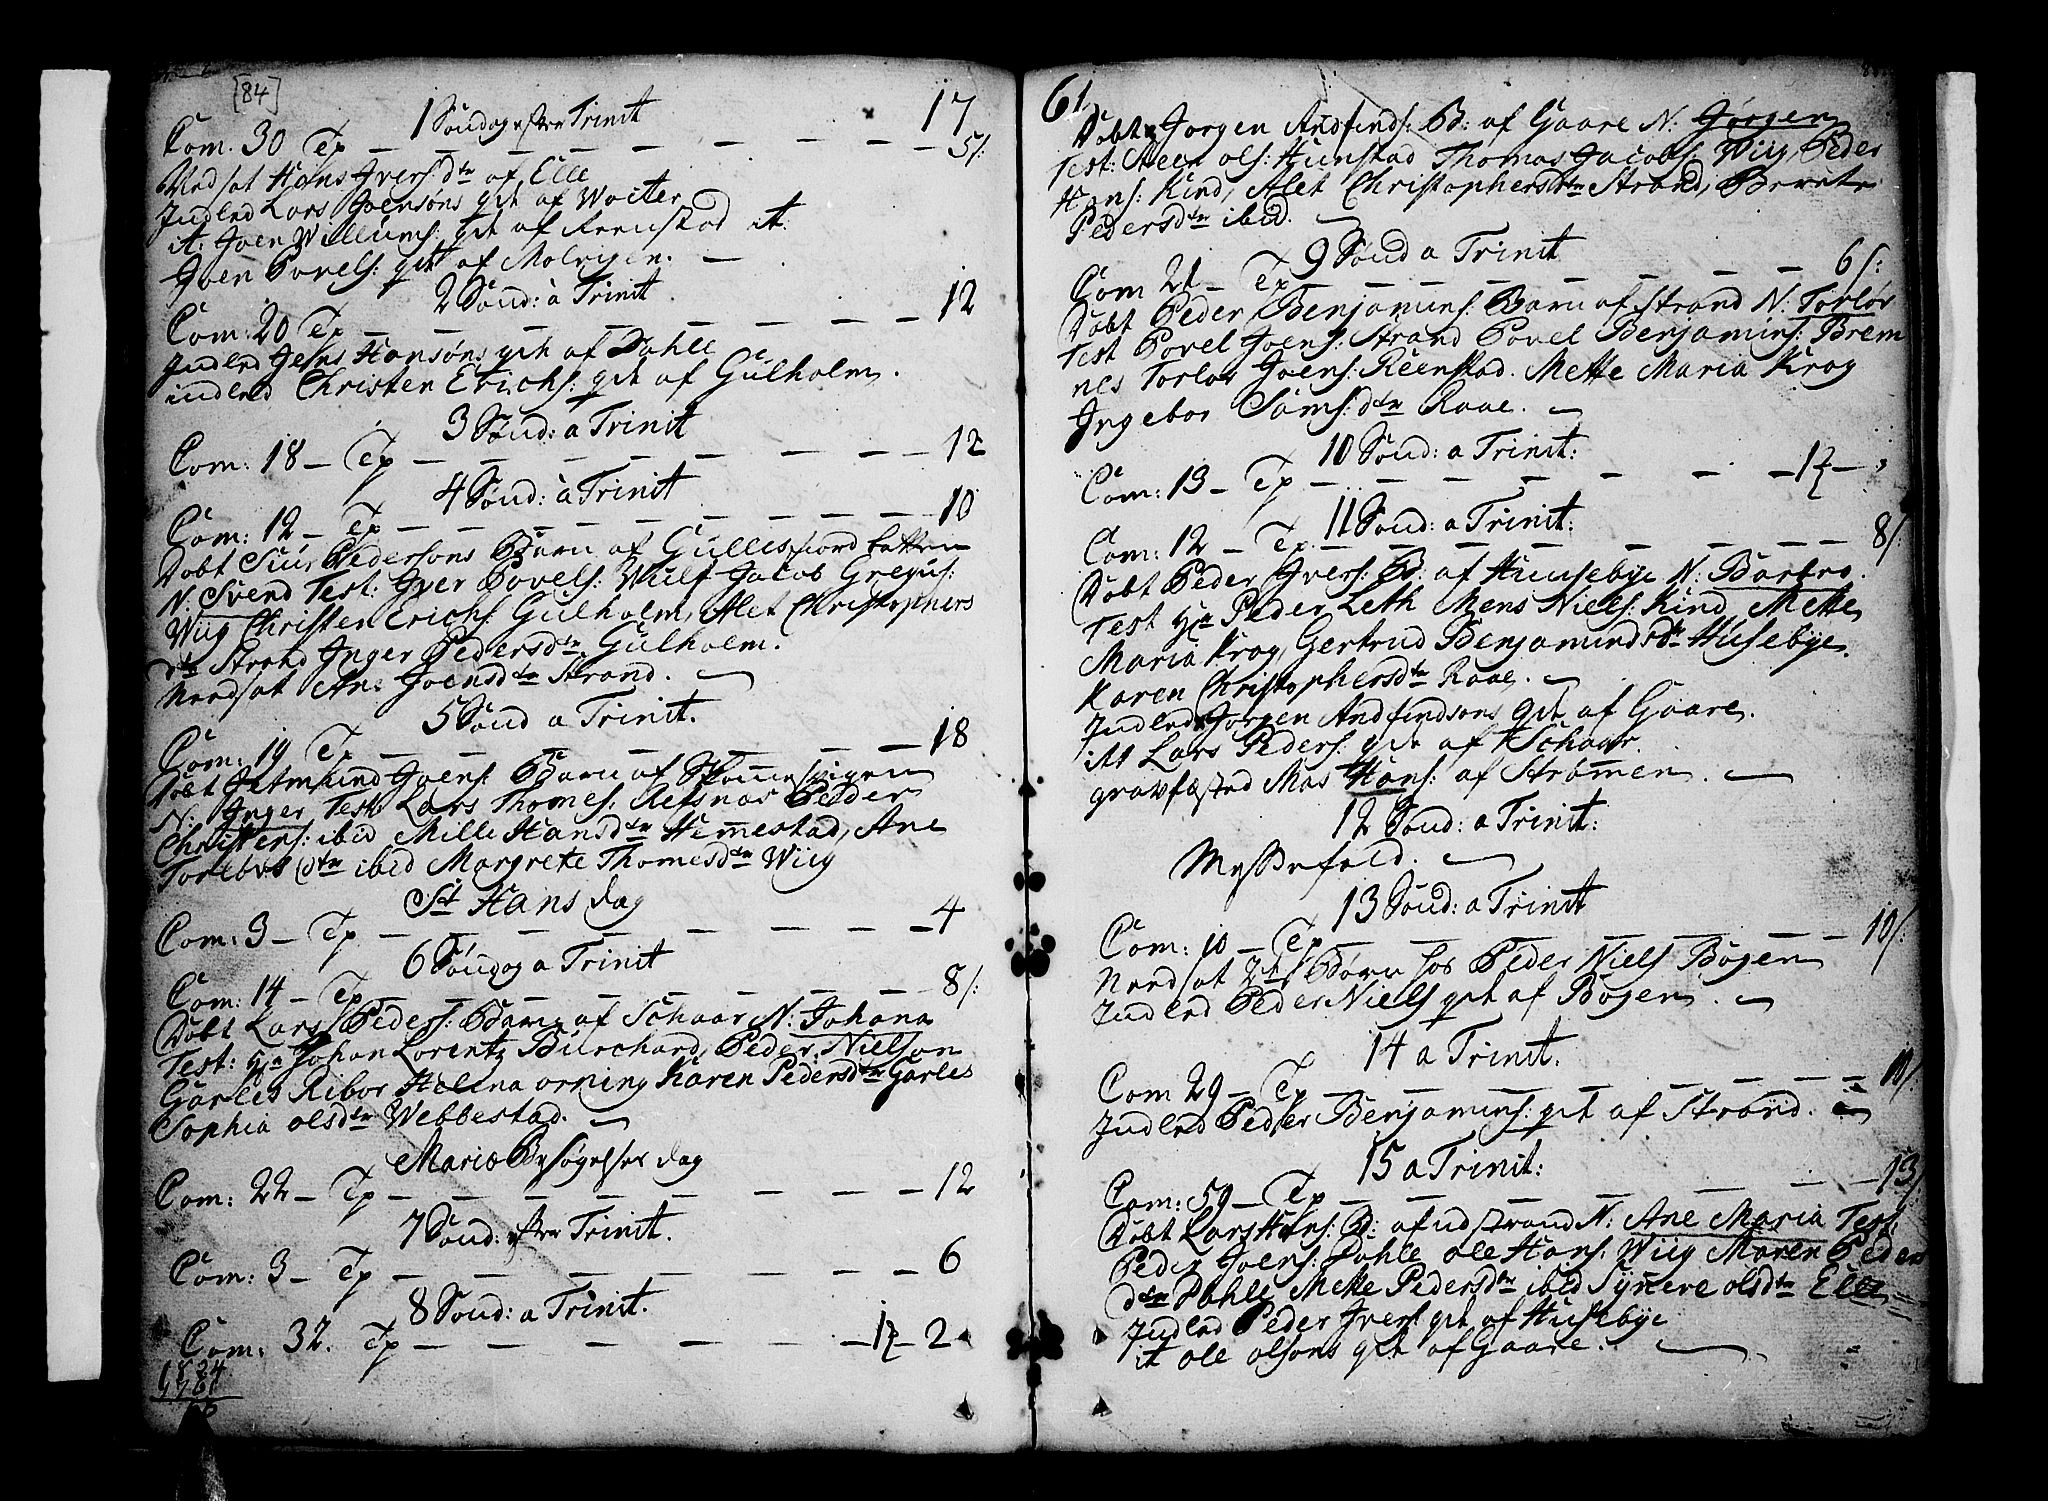 [84]
1 Søndag efter Trinit 17
Com. 30 Tp — — — — — — — 5/:
Nedsat Hans Ivers: dtr af Elle
Indled Lars Joensøns qvt af Woiter
it: Joen Willums: qvt af Reenstad it:
Joen Povels: qvt af Molvigen. —
2 Sønd: à Trinit
Com: 20 Tp — — — — — — — 12
Indled Jens Hansøns qvt af Dahle
indled Christen Erichs: qvt af Gulholm.
3 Sønd: a Trinit
Com: 18 — Tp — — — — — — — 12
4 Sønd: à Trinit
Com: 12 — Tp — — — — — — — 10
Døbt Siur Pedersøns Barn af Gullesfiord batten
N. Svend Test: Iver Povels: Wulf Jacob Gregus:
Wiig Christen Erichs: Gulholm, Alet Christophers
dtr Strand Inger Pedersdtr Gulholm.
Nedsat Ane Joensdtr Strand.
5 Sønd a Trinit.
Com: 19 Tp — — — — — — — 18
Døbt Jetmund Joens: Barn af
N: Inger Test: Lars Thomes: Refsnæs Peder
Christens: ibid Mille Hansdtr Hemmestad, Ane
dtr ibid Margrete Thomesdtr Wiig
St Hans dag
Com: 3 — Tp — — — — — — — 4
6 Søndag a Trinit
Com: 14 — Tp — — — — — — — 8/:
Døbt Lars Peders: Barn af Schaar N: Johana
Test: Hr Johan Lorentz Burchard, Peder Nielsøn
Garles Ribor Helena orning Karen Pedersdtr Garles
Sophia olsdtr Webbestad.
Mariæ Besøgelses dag
Com: 22 — Tp — — — — — — — 12
7 Sønd: efter Trinit.
Com: 3 — Tp — — — — — — — 6
8 Sønd: a Trinit.
Com: 32. Tp — — — — — 1 — 2
61
Døbt Jørgen Andfinds: B: af Gaare N: Jørgen
Test: Steen ols: Hunstad Thomas Jacobs: Wiig, Peder
Hans: Kind, Alet Christophersdtr Strand, Berete
Pedersdtr ibid.
9 Sønd a Trinit
Com 21 — Tp — — — — — — — 6/:
Døbt Peder Benjamins: Barn af Strand N: Torlør
Test Povel Joens: Strand Povel Benjamins: Brem
nes Torlør Joens: Reenstad. Mette Maria Krog
Ingebor Sams: dtr Raae.
10 Sønd: a Trinit:
Com: 13 — Tp — — — — — — — 12 —
11 Sønd: a Trinit:
Com: 12 — Tp — — — — — — — 8/:
Døbt Peder Ivers: B: af Huusebye N:
Test Hr Peder Leth Mens Niels: Kind, Mette
Maria Krog, Gertrud Benjamindsdtr Husebye.
Karen Christophersdtr Raae.
Indled Jørgen Andfindsøns qvt af Gaare.
it Lars Peders: qvt af Schaar.
gravfæsted Mas Hans: af Strømmen.
12 Sønd: a Trinit:
Messefald.
13 Sønd: a Trinit
Com: 10 — Tp — — — — — — — 10/:
Nedsat 2de Børn hos Peder Niels Bogen
Indled Peder Niels qvt af Bogen.
14 a Trinit.
Com 29 — Tp — — — — — — — 10/:
Indled Peder Benjamins: qvt af Strand.
15 a Trinit:
Com: 59 — Tp — — — — — — — 13/:
Døbt Lars Hans: B: af udstrand N: Ane Maria Test:
Peder Joens: Dahle ole Hans: Wiig Maren Peder
dtr Dahle Mette Pedersdtr ibid Synneve olsdtr Elle
Indled Peder Ivers: qvt af Husebye
it ole olsøns qvt af Gaare.